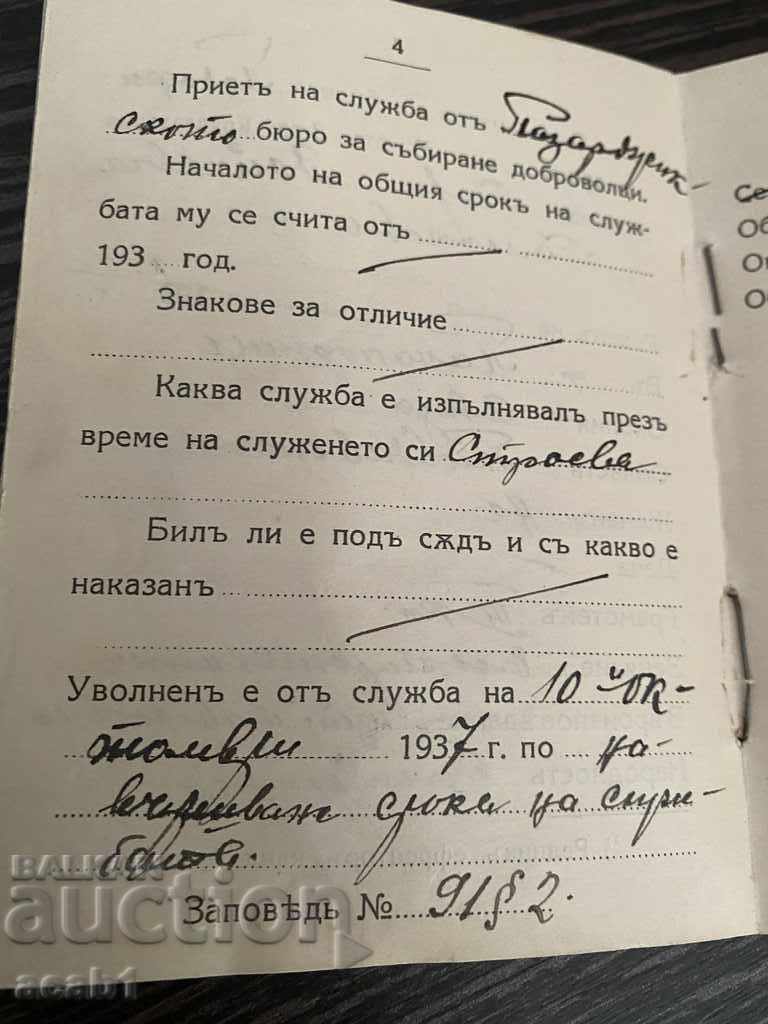 4
Приетъ на служба отъ Пазарджик-
ското бюро за събиране доброволци.
Началото на общия срокъ на служ-
бата му се счита отъ
193 год.
Знакове за отличие
Каква служба е изпълнявалъ презъ
време на служенето си Строева
Билъ ли е подъ сѫдъ и съ какво е
наказанъ
Уволненъ е отъ служба на 10 ок-
томври 1937 г. по
срока на служ-
бата.
Заповѣдь № 91 § 2.
се
Об
О
BALKAN
auction
acab1